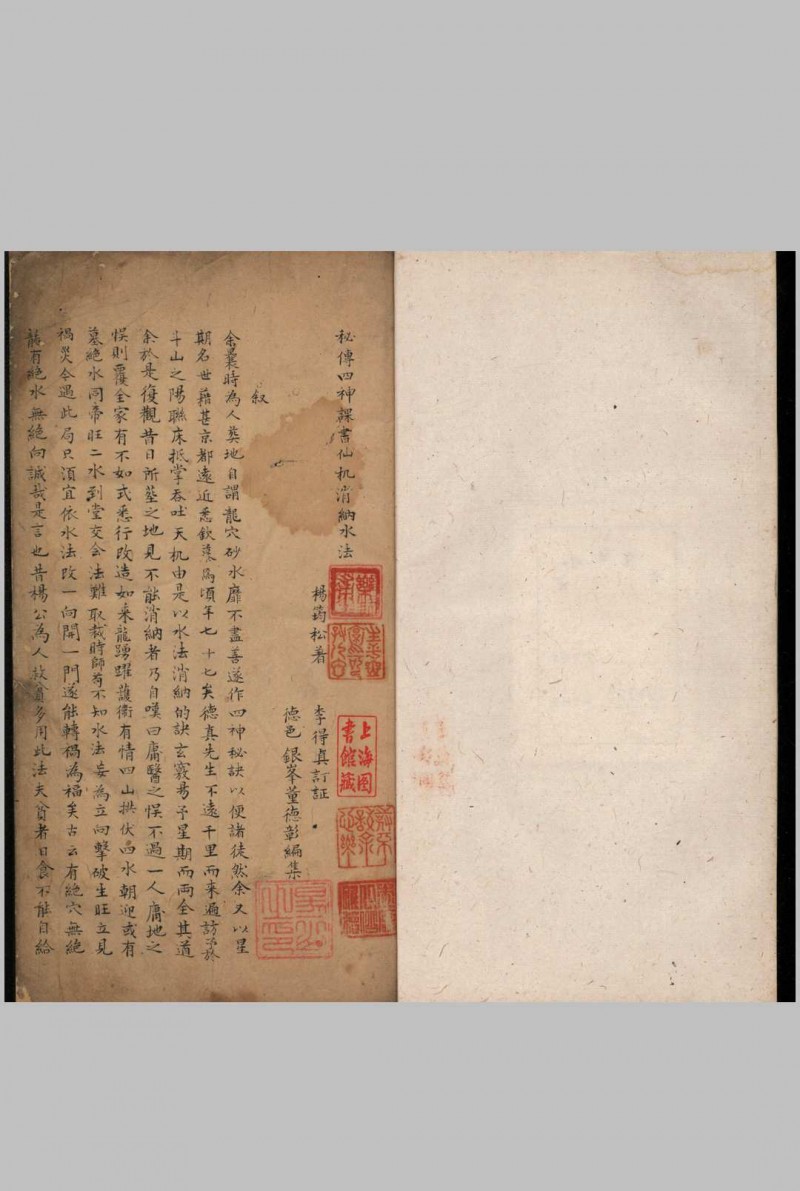 秘傳四神課書仙机消納水法
楊筠松著
李得真訂証
德邑銀峯董德彰編集
叙
余曩時為人葬地自謂龍穴砂水靡不盡善遂作四神秘訣以便諸徒然余又以星
期名世藉甚京都遠近悉欽慕焉頃年七十七矣德真先生不遠千里而来遍訪余於
斗山之陽聯床抵掌吞吐天机由是以水法消納的訣玄竅易予星期而两全其道
余於是復觀昔日所塟之地見不能消納者乃自嘆曰庸醫之悞不過一人庸地之
悞則覆全家有不如式悉行改造如来龍踴躍護衛有情四山拱伏吕水朝迎或有
墓絶水同帝旺二水到堂交会法難取裁時師苟不知水法妄為立向擊破生旺立見
禍災今遇此局只湏宜依水法改一向開一門遂能轉禍為福矣古云有絶穴無絶
龍有絶水無絶向誠哉是言也昔楊公為人救貧多用此法夫貧者日食不能自給
上海圖書館藏